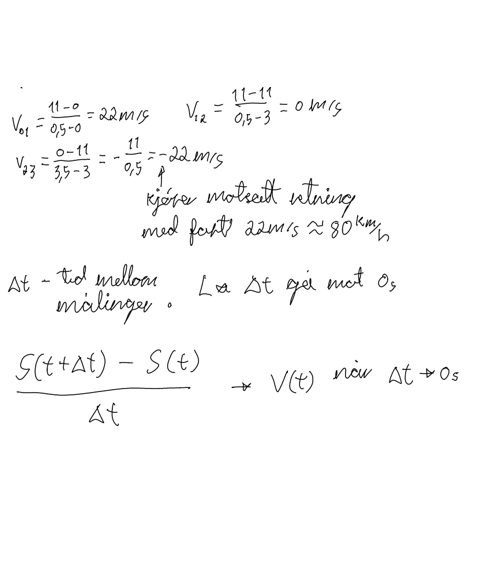 V₀₁ = (11-0)/(0,5-0) = 22m/s V₁₂ = (11-11)/(0,5-3) = 0 m/s
V₂₃ = (0-11)/(3,5-3) = -11/0,5 = -22m/s
kjører motsatt retning
med fart 22m/s ≈ 80 km/h
Δt - tid mellom La Δt gå mot 0s
målinger.
(S(t+Δt) - S(t))/Δt → V(t) når Δt → 0s